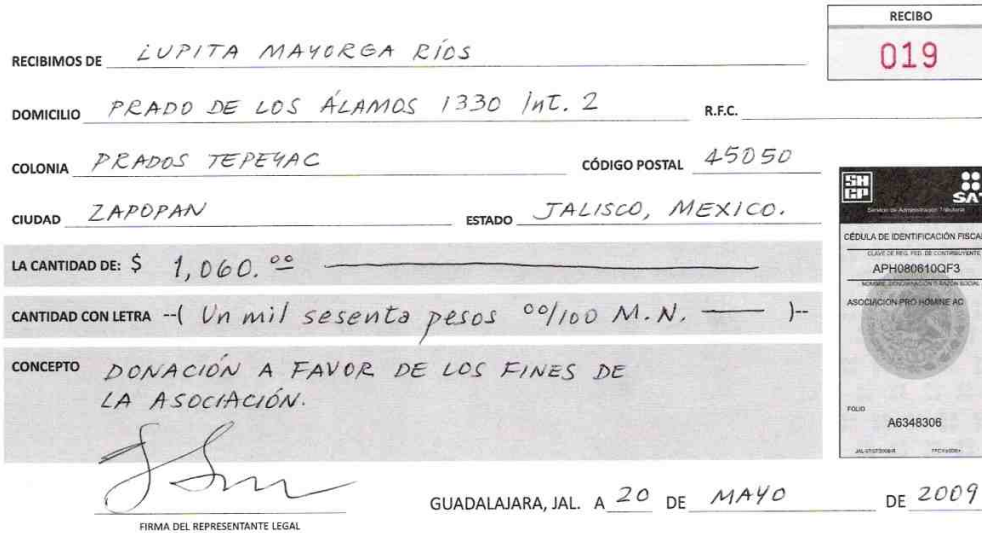 RECIBO
019
RECIBIMOS DE LUPITA MAYORGA RÍOS
DOMICILIO PRADO DE LOS ÁLAMOS 1330 INT. 2 R.F.C.
COLONIA PRADOS TEPEYAC CÓDIGO POSTAL 45050
CIUDAD ZAPOPAN ESTADO JALISCO, MEXICO.
LA CANTIDAD DE: $ 1,060.00
CANTIDAD CON LETRA --( Un mil sesenta pesos 00/100 M.N. )--
CONCEPTO DONACIÓN A FAVOR DE LOS FINES DE
LA ASOCIACIÓN.
FIRMA DEL REPRESENTANTE LEGAL
GUADALAJARA, JAL. A 20 DE MAYO DE 2009
SHCP SAT
Servicio de Administración Tributaria
CÉDULA DE IDENTIFICACIÓN FISCAL
CLAVE DE REG. FED. DE CONTRIBUYENTE
APH080610QF3
NOMBRE, DENOMINACIÓN O RAZÓN SOCIAL
ASOCIACION PRO HOMINE AC
FOLIO
A6348306